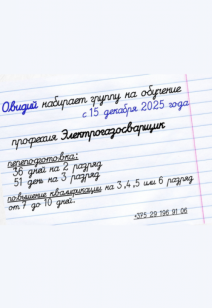 Овидий набирает группу на обучение
с 15 декабря 2025 года
профессия Электрогазосварщик
переподготовка:
36 дней на 2 разряд
51 день на 3 разряд
повышение квалификации на 3,4,5 или 6 разряд
от 7 до 10 дней.
+375 29 196 91 06